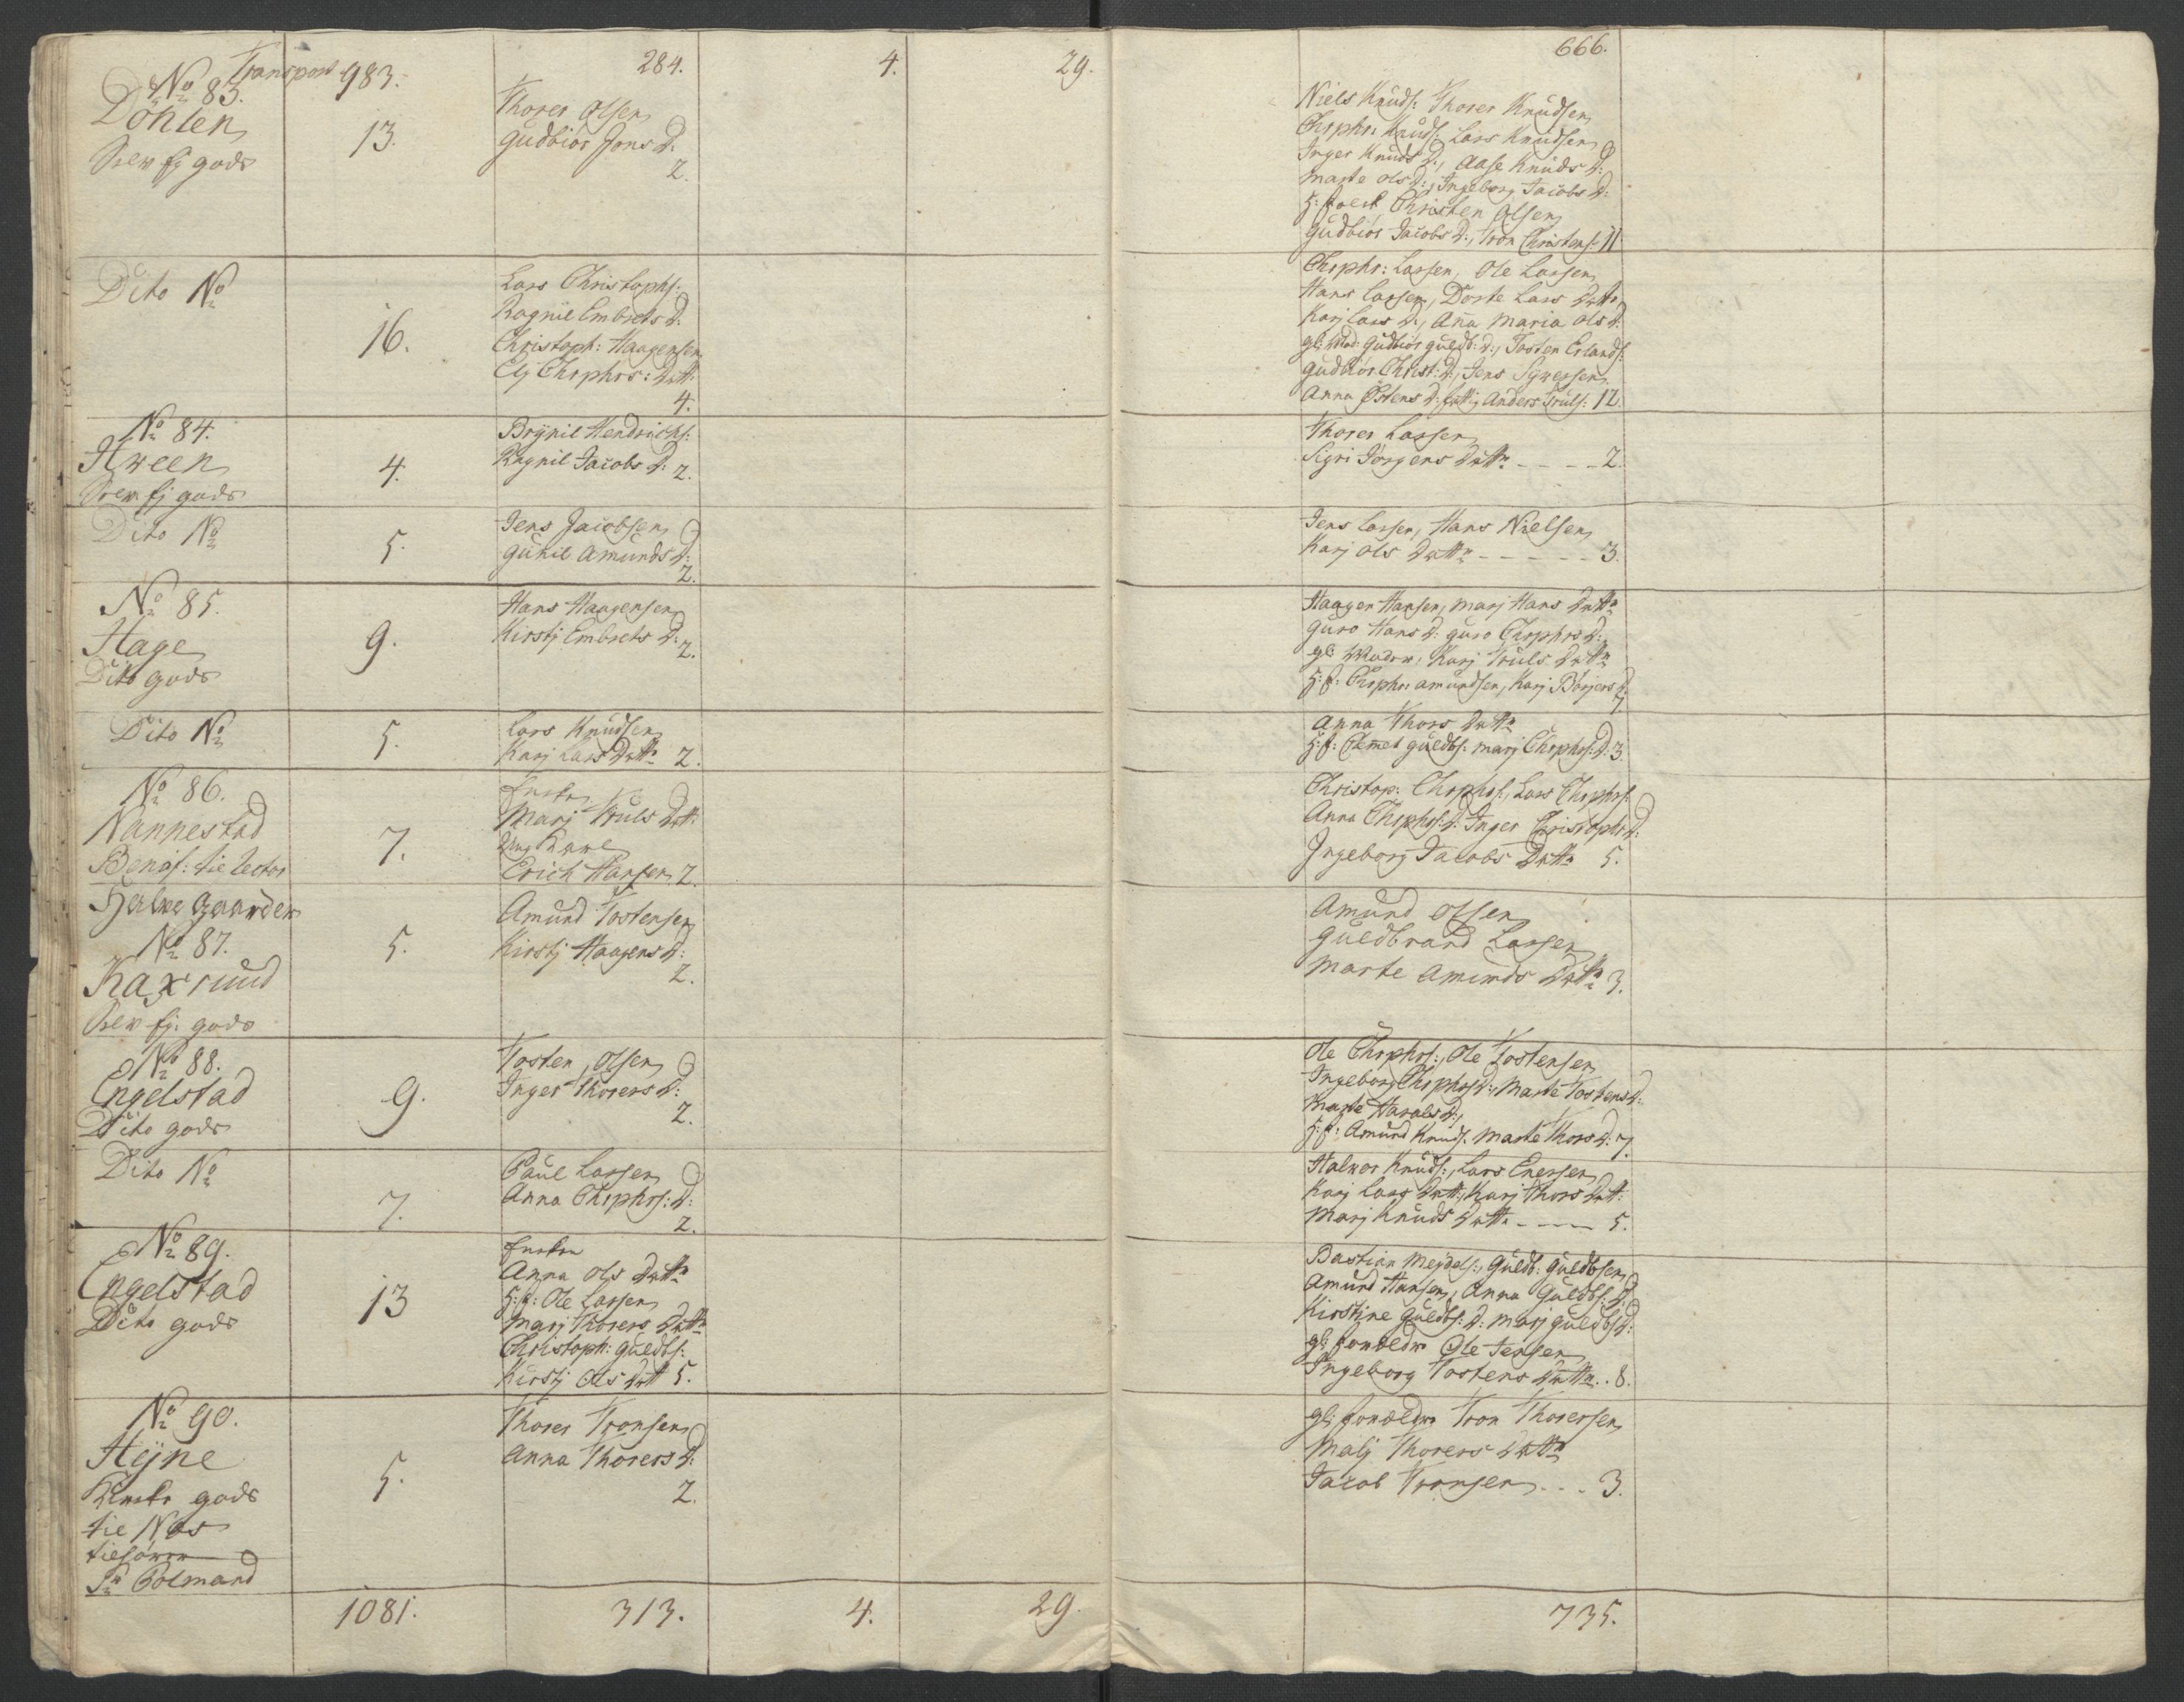 Transport 983. 284. 4. 29. 666.
No 83.
Döhlen
Selv Ej gods
13.
Thorer Olsen
Gudbiör Jons D:
2.
Niels Knuds: Thorer Knudsen
Chrphr: Knuds: Lars Knudsen
Inger Knuds D:, Aase Knuds D:
Marte Ols D:, Ingeborg Jacobs D:
H: folck Christen Olsen
Gudbiör Jacobs D:, Tron Christens: 11
Dito No
16.
Lars Christophs:
Ragnil Embrets D:
Christoph: Haagensen
Elj Chrphrs: Datt:
4.
Chrphr: Larsen, Ole Larsen
Hans Larsen, Dorte Lars Dattr
Karj Lars D:, Anna Maria Ols D:
gl: Gudbiör Guldb: D:, Tosten Erlands:
Gudbiör Christ: D:, Jens Sÿversen
Anna Östens D: fattig Anders Truls: 12.
No 84.
Hveen
Selv Ej gods
4.
Brÿnil Hendrichs:
Ragnil Jacobs D: 2.
Thorer Larsen
Sigri Jörgens Dattr - - - - 2.
Dito No
5.
Jens Jacobsen
Gunil Amunds D:
2.
Jens Larsen, Hans Nielsen
Karj Ols Dattr - - - - - 3.
No 85.
Hage
Dito gods
9.
Hans Haagensen
Kirstj Embrets D: 2.
Haagen Hansen, Marj Hans Dattr
Guro Hans D: Guro Chrphrs D:
gl: Moder, Karj Truls Dattr
H: f: Chrphr: Amundsen, Karj Börjers D:
7.
Dito No
5.
Lars Knudsen
Karj Lars Dattr 2.
Anna Thors Dattr
H: f: Clemet Guldbs: Marj Chrphrs: D: 3.
No 86.
Nannestad
Benif: til Lector
7.
Encke
Marj Truls Datt:
Ung Karl
Erich Hansen 2.
Christop: Chrphrs:, Lars Chrphrs:
Anna Chrphrs: D: Inger Christophr D:
Ingeborg Jacobs Dattr 5.
Halve Gaarden
No 87.
Kaxrud
Selv Ej: gods
5.
Amund Tostensen
Kirstj Haagens D:
2.
Amund Olsen
Guldbrand Larsen
Marte Amunds Dattr 3.
No 88.
Engelstad
Dito gods
9.
Tosten Olsen
Inger Thorers D:
2.
Ole Chrphrs:, Ole Tostensen
Ingeborg Chrphrs D:, Marte Tostens D:
Marte Haralds D:,
H: f: Amund Knuds: Marte Thors D: 7.
Dito No
7.
Paul Larsen
Anna Chrphrs: D:
2.
Halvor Knuds:, Lars Enersen
Karj Lars Datt:, Karj Thors Datt:
Marj Knuds Dattr - - - 5.
No 89.
Engelstad
Dito gods
13
Encken
Anna Ols Dattr
H: f: Ole Larsen
Marj Thorers Dattr
Christoph: Guldbs:
Kirstj Ols Datt 5.
Bastian Meydels:, Guldb: Guldbsen
Amund Hansen, Anna Guldbs: D:
Kirstine Guldbs: D: Marj Guldbs D:
gl: foreldre Ole Jensen
Ingeborg Tostens Dattr . . 8.
No 90.
Hÿne
gods
til Næs
Sr Colmand
5.
Thorer Tronsen
Anna Thorers D:
2.
gl: foreldre Tron Thorersen
Malj Thorers Dattr
Jacob Tronsen . . . 3.
1081. 313. 4. 29. 735.